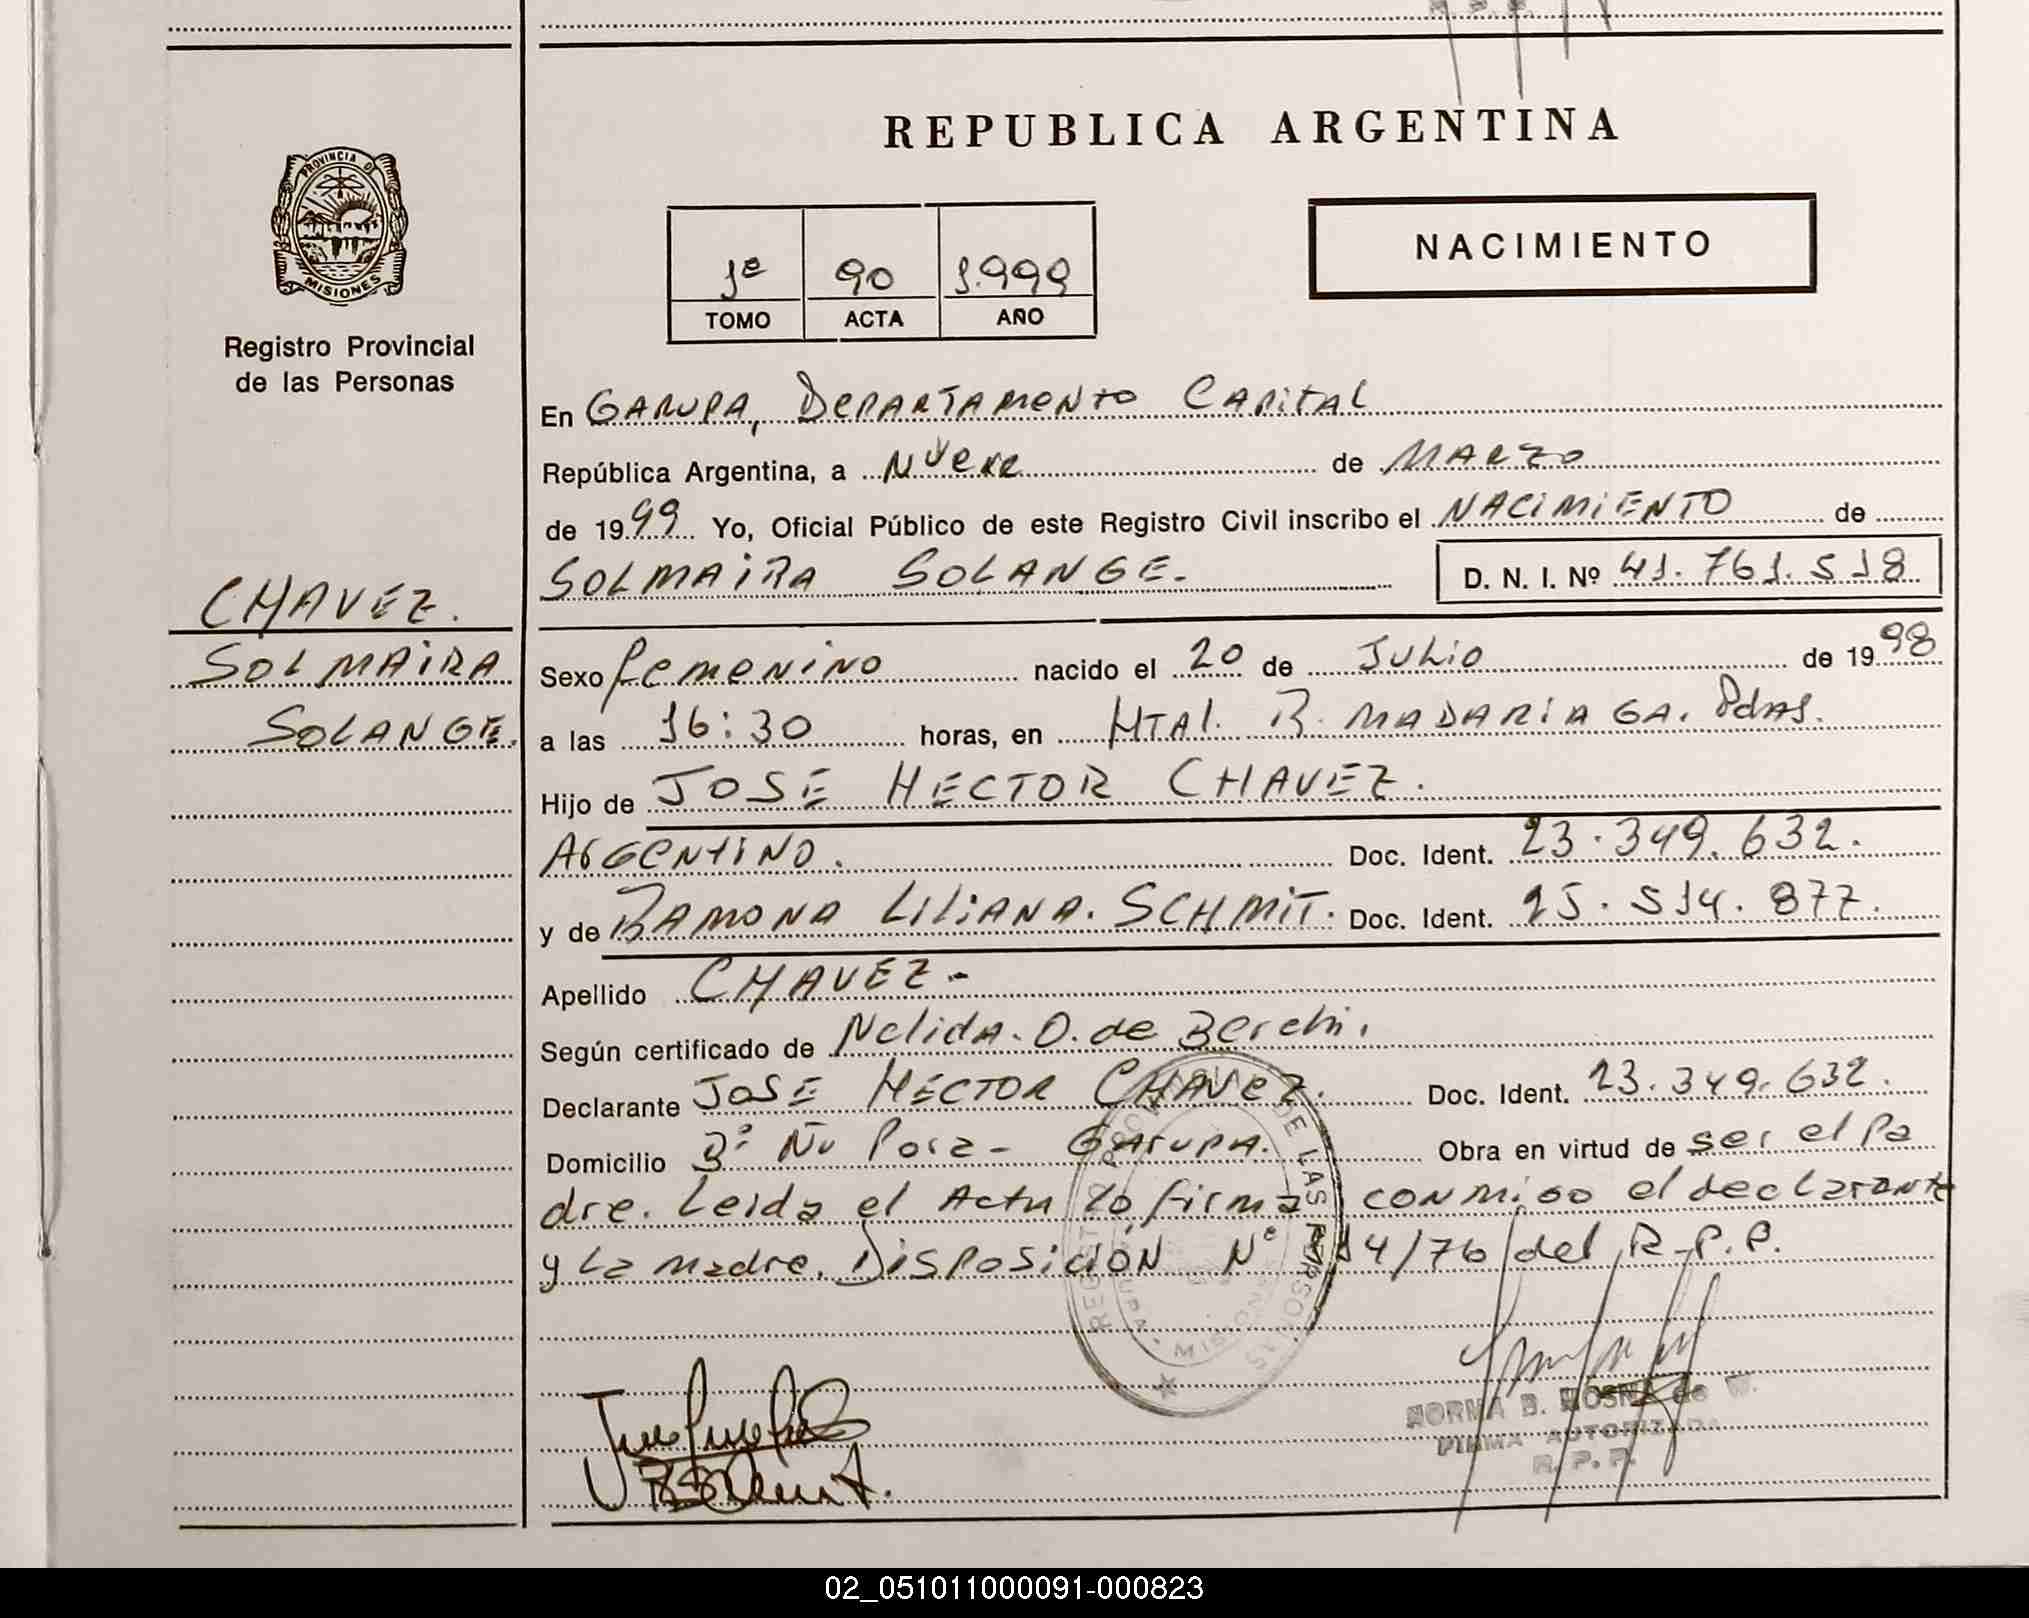 REPUBLICA ARGENTINA
PROVINCIA D
MISIONES
Registro Provincial
de las Personas
NACIMIENTO
1º 90 1.999
TOMO ACTA AÑO
En GARUPA, DEPARTAMENTO CAPITAL
República Argentina, a NUEVE de MARZO
de 1999 Yo, Oficial Público de este Registro Civil inscribo el NACIMIENTO de
SOLMAIRA SOLANGE. D. N. I. Nº 41.761.518
CHAVEZ.
SOLMAIRA
SOLANGE.
Sexo femenino nacido el 20 de JULIO de 1998
a las 16:30 horas, en HTAL. R. MADARIAGA. Pdas.
Hijo de JOSE HECTOR CHAVEZ.
ARGENTINO. Doc. Ident. 23.349.632.
y de RAMONA LILIANA. SCHMIT. Doc. Ident. 25.514.877.
Apellido CHAVEZ.-
Según certificado de Nelida. O. de
Declarante JOSE HECTOR CHAVEZ. Doc. Ident. 23.349.632.
Domicilio Bº Ñu Pora - GARUPA. Obra en virtud de ser el Pa
dre. Leida el Acta la firma conmigo el declarante
y La madre. DISPOSICION Nº 14/76 del R.P.P.
REGISTRO PROVINCIAL DE LAS PERSONAS
GARUPA - MISIONES
NORMA B. de W.
FIRMA AUTORIZADA
R. P. P.
02_051011000091-000823